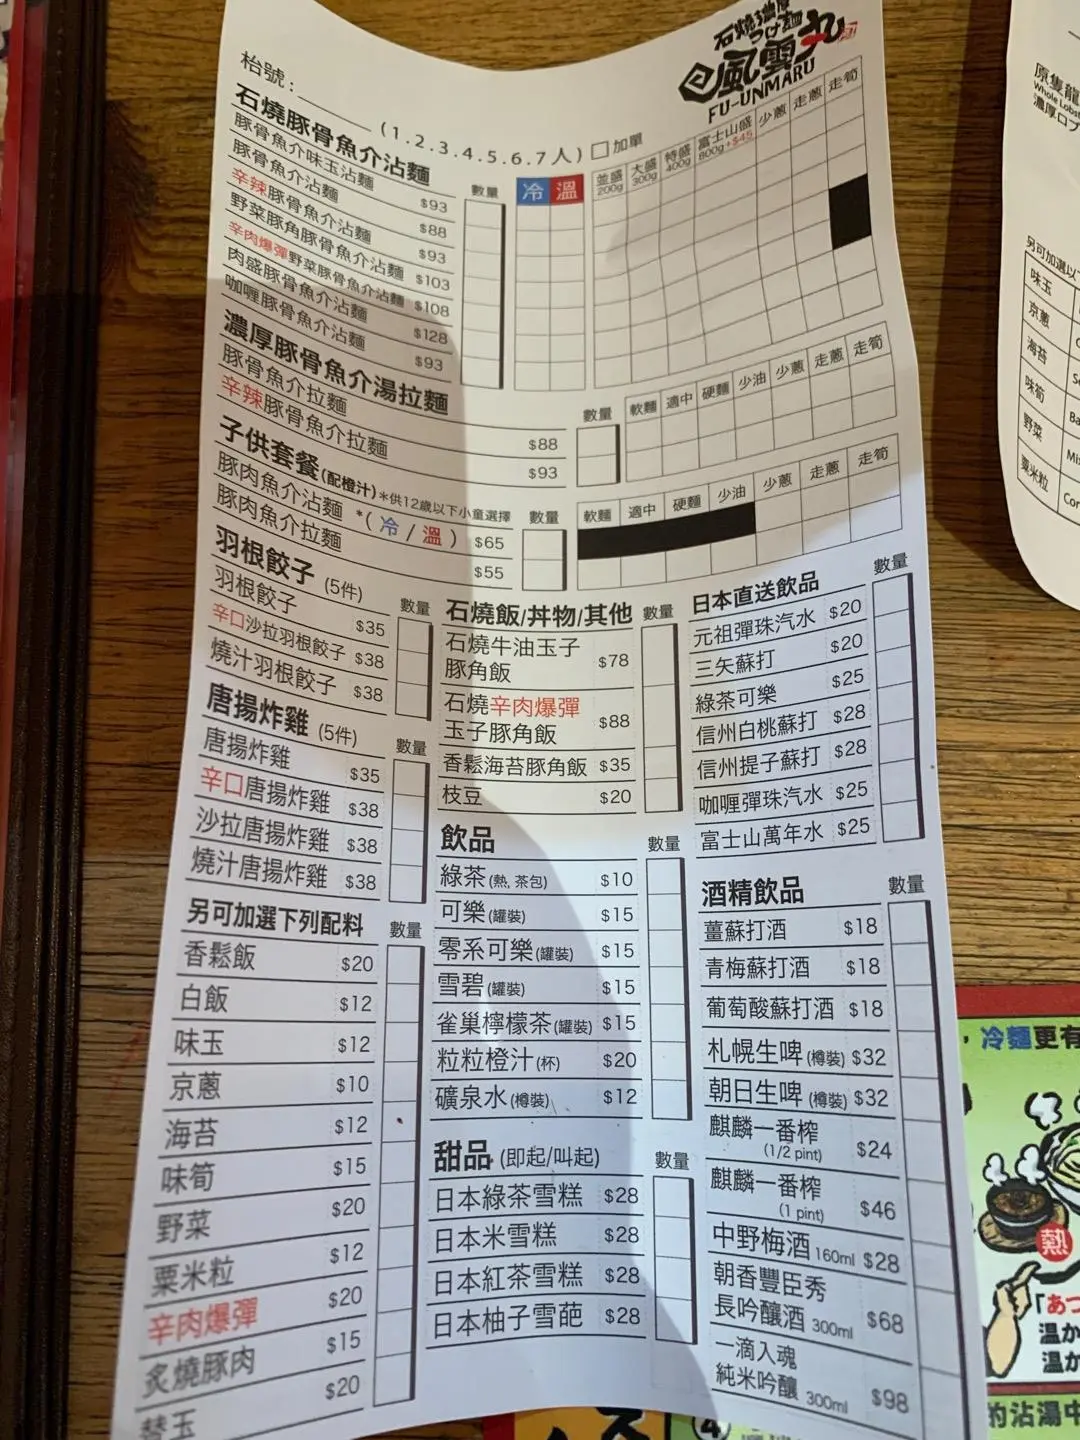 石燒濃厚
つけ麺
風雲丸
FU-UNMARU
枱號：______ (1.2.3.4.5.6.7人) □加單
石燒豚骨魚介沾麵 數量 冷 溫 並盛 200g 大盛 300g 特盛 400g 富士山盛 800g +$45 少蔥 走蔥 走筍
豚骨魚介味玉沾麵 $93
豚骨魚介沾麵 $88
辛辣豚骨魚介沾麵 $93
野菜豚角豚骨魚介沾麵 $103
辛肉爆彈野菜豚骨魚介沾麵 $108
肉盛豚骨魚介沾麵 $128
咖喱豚骨魚介沾麵 $93
濃厚豚骨魚介湯拉麵 數量 軟麵 適中 硬麵 少油 少蔥 走蔥 走筍
豚骨魚介拉麵 $88
辛辣豚骨魚介拉麵 $93
子供套餐(配橙汁)*供12歲以下小童選擇 數量 軟麵 適中 硬麵 少油 少蔥 走蔥 走筍
豚肉魚介沾麵 *(冷/溫) $65
豚肉魚介拉麵 $55
羽根餃子 (5件) 數量
羽根餃子 $35
辛口沙拉羽根餃子 $38
燒汁羽根餃子 $38
唐揚炸雞 (5件) 數量
唐揚炸雞 $35
辛口唐揚炸雞 $38
沙拉唐揚炸雞 $38
燒汁唐揚炸雞 $38
另可加選下列配料 數量
香鬆飯 $20
白飯 $12
味玉 $12
京蔥 $10
海苔 $12
味筍 $15
野菜 $20
粟米粒 $12
辛肉爆彈 $20
炙燒豚肉 $15
替玉 $20
石燒飯/丼物/其他 數量
石燒牛油玉子
豚角飯 $78
石燒辛肉爆彈
玉子豚角飯 $88
香鬆海苔豚角飯 $35
枝豆 $20
飲品 數量
綠茶(熱, 茶包) $10
可樂(罐裝) $15
零系可樂(罐裝) $15
雪碧(罐裝) $15
雀巢檸檬茶(罐裝) $15
粒粒橙汁(杯) $20
礦泉水(樽裝) $12
甜品 (即起/叫起) 數量
日本綠茶雪糕 $28
日本米雪糕 $28
日本紅茶雪糕 $28
日本柚子雪葩 $28
日本直送飲品 數量
元祖彈珠汽水 $20
三矢蘇打 $20
綠茶可樂 $25
信州白桃蘇打 $28
信州提子蘇打 $28
咖喱彈珠汽水 $25
富士山萬年水 $25
酒精飲品 數量
薑蘇打酒 $18
青梅蘇打酒 $18
葡萄酸蘇打酒 $18
札幌生啤(樽裝) $32
朝日生啤(樽裝) $32
麒麟一番榨
(1/2 pint) $24
麒麟一番榨
(1 pint) $46
中野梅酒 160ml $28
朝香豐臣秀
長吟釀酒 300ml $68
一滴入魂
純米吟釀 300ml $98
原隻龍
Whole Lobst
濃厚ロブ
另可加選以
味玉
京蔥
海苔
味筍
野菜
粟米粒
Cor
，冷麵更有
燒
「あつ
温か
温か
的沾湯中
④